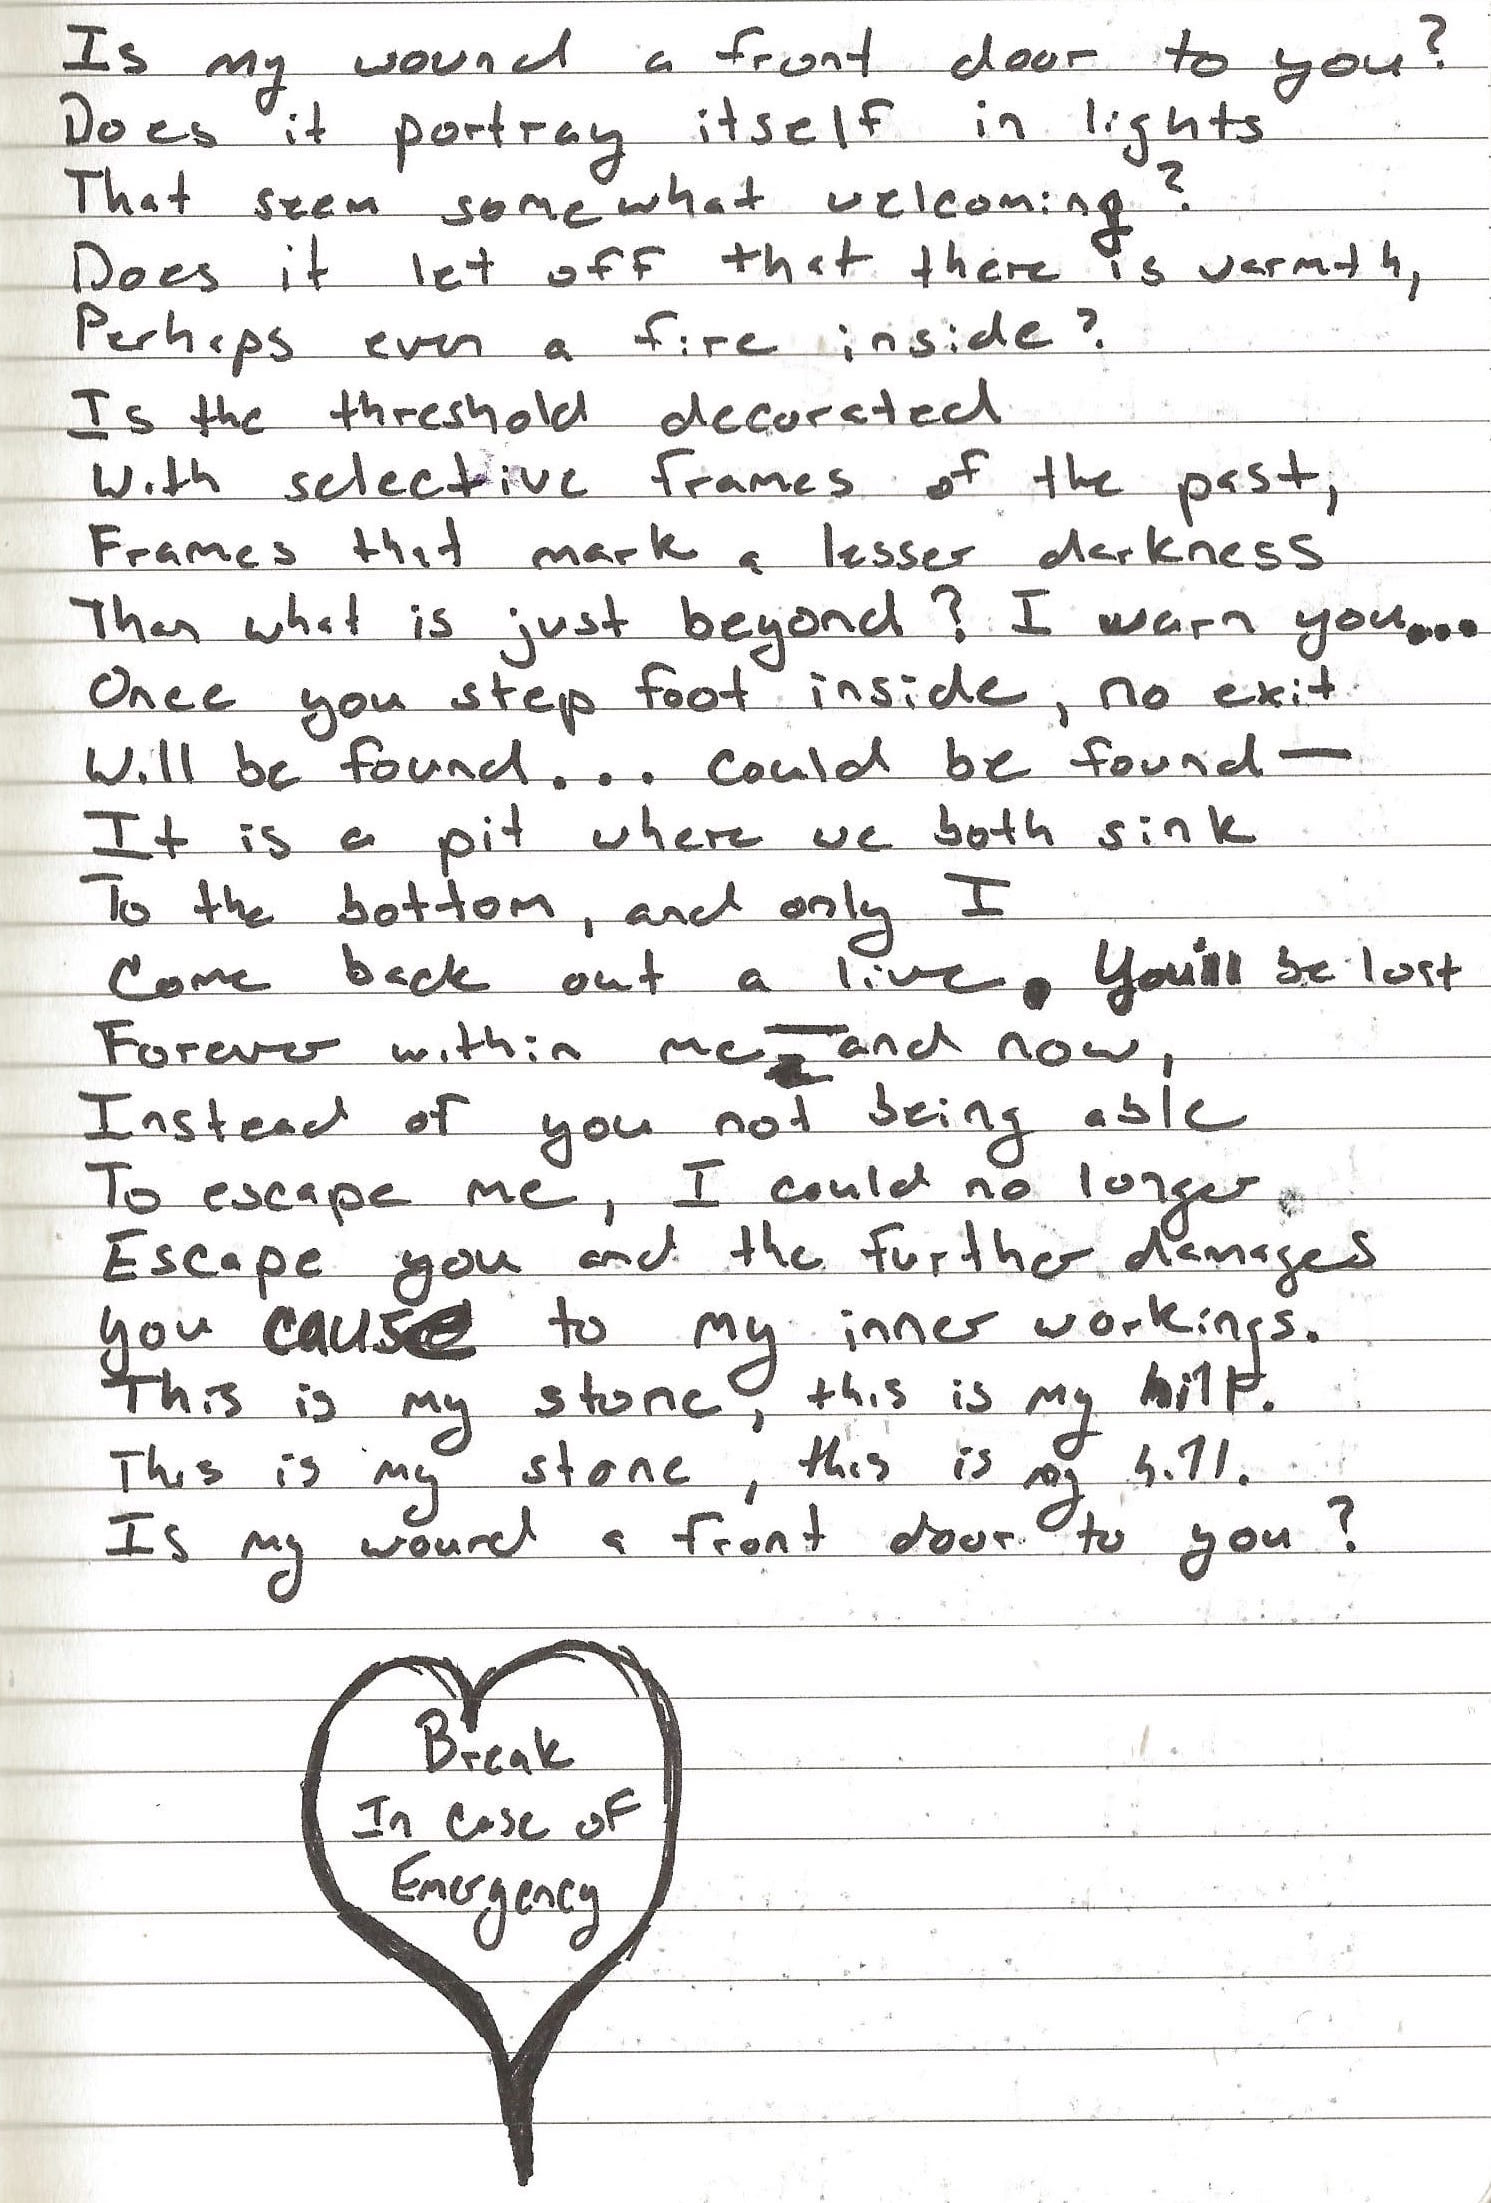 Is my wound a front door to you?
Does it portray itself in lights
That seem somewhat welcoming?
Does it let off that there is warmth,
Perhaps even a fire inside?
Is the threshold decorated
With selective frames of the past,
Frames that mark a lesser darkness
Than what is just beyond? I warn you...
Once you step foot inside, no exit
Will be found... could be found—
It is a pit where we both sink
To the bottom, and only I
Come back out a live. You'll be lost
Forever within me—and now,
Instead of you not being able
To escape me, I could no longer
Escape you and the further damages
you cause to my inner workings.
This is my stone, this is my hill.
This is my stone, this is my hill.
Is my wound a front door to you?
Break
In Case of
Emergency